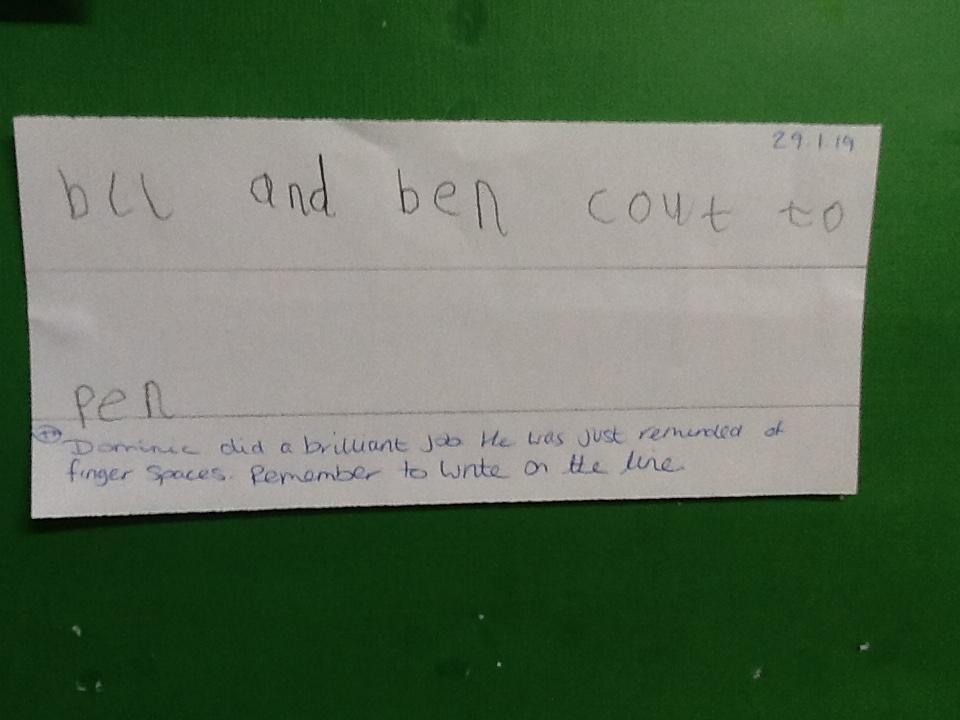 29.1.19
bll and ben cout to
pen
Dominic did a brilliant job He was just reminded of
finger spaces. Remember to write on the line.